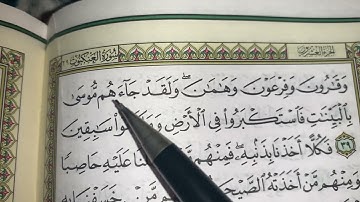 سُورَةُ العَنكَبُوتِ
وَقَٰرُونَ وَفِرْعَوْنَ وَهَٰمَٰنَ ۖ وَلَقَدْ جَآءَهُم مُّوسَىٰ
بِٱلْبَيِّنَٰتِ فَٱسْتَكْبَرُوا۟ فِى ٱلْأَرْضِ سَٰبِقِينَ
٣٩ فَكُلًّا أَخَذْنَا بِذَنۢبِهِۦ ۖ فَمِنْهُم عَلَيْهِ حَاصِبًا
وَمِنْهُم مَّنْ أَخَذَتْهُ ٱلصَّيْحَةُ